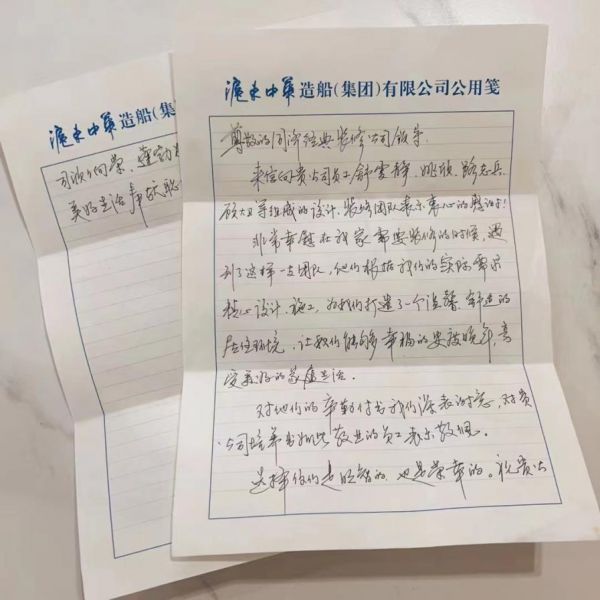 沪东中华造船(集团)有限公司公用笺
尊敬的同济经典装修公司领导
来信向贵公司员工舒雲静、姚欣、路志兵、
硕大卫等组成的设计、装修团队表示衷心的感谢!
非常幸运在我家需要装修的时候,遇
到了这样一支团队,他们根据我们的实际需求
精心设计、施工,为我们打造了一个温馨、舒适的
居住环境,让我们能够幸福的安度晚年,享
受美好的家庭生活。
对他们的辛勤付出我们深表谢意,对贵
公司培养出如此敬业的员工表示敬佩。
选择你们是明智的、也是荣幸的。祝贵公
沪东中华造船(集
司欣欣向荣、
美好生活奉献